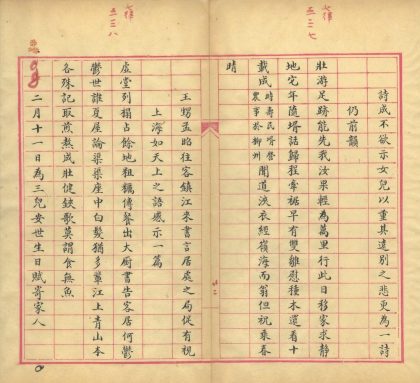 七律
五三七
詩成不欲示女兒以重其遠別之悲更為一詩
仍前韻
壯游足跡能先我汝果輕為萬里行此日移家求靜
地它年隨壻話歸程牽裾早有雙雛慰種木還看十
載成時壽民壻督農事於柳州聞道浣衣經嶺海而翁但祝乘春
晴
七律
五三八
王甥孟昭往容鎮江來書言居處之局促有視
上海如天上之語感示一篇
虛堂列榻占餘地粗糲傳餐出大廚書告客居何鬱
鬱世誰夏屋論渠渠座中白髮猶多輩江上青山本
各殊記取煎熬成壯健鋏歌莫謂食無魚
二月十一日為三兒安世生日賦寄家人